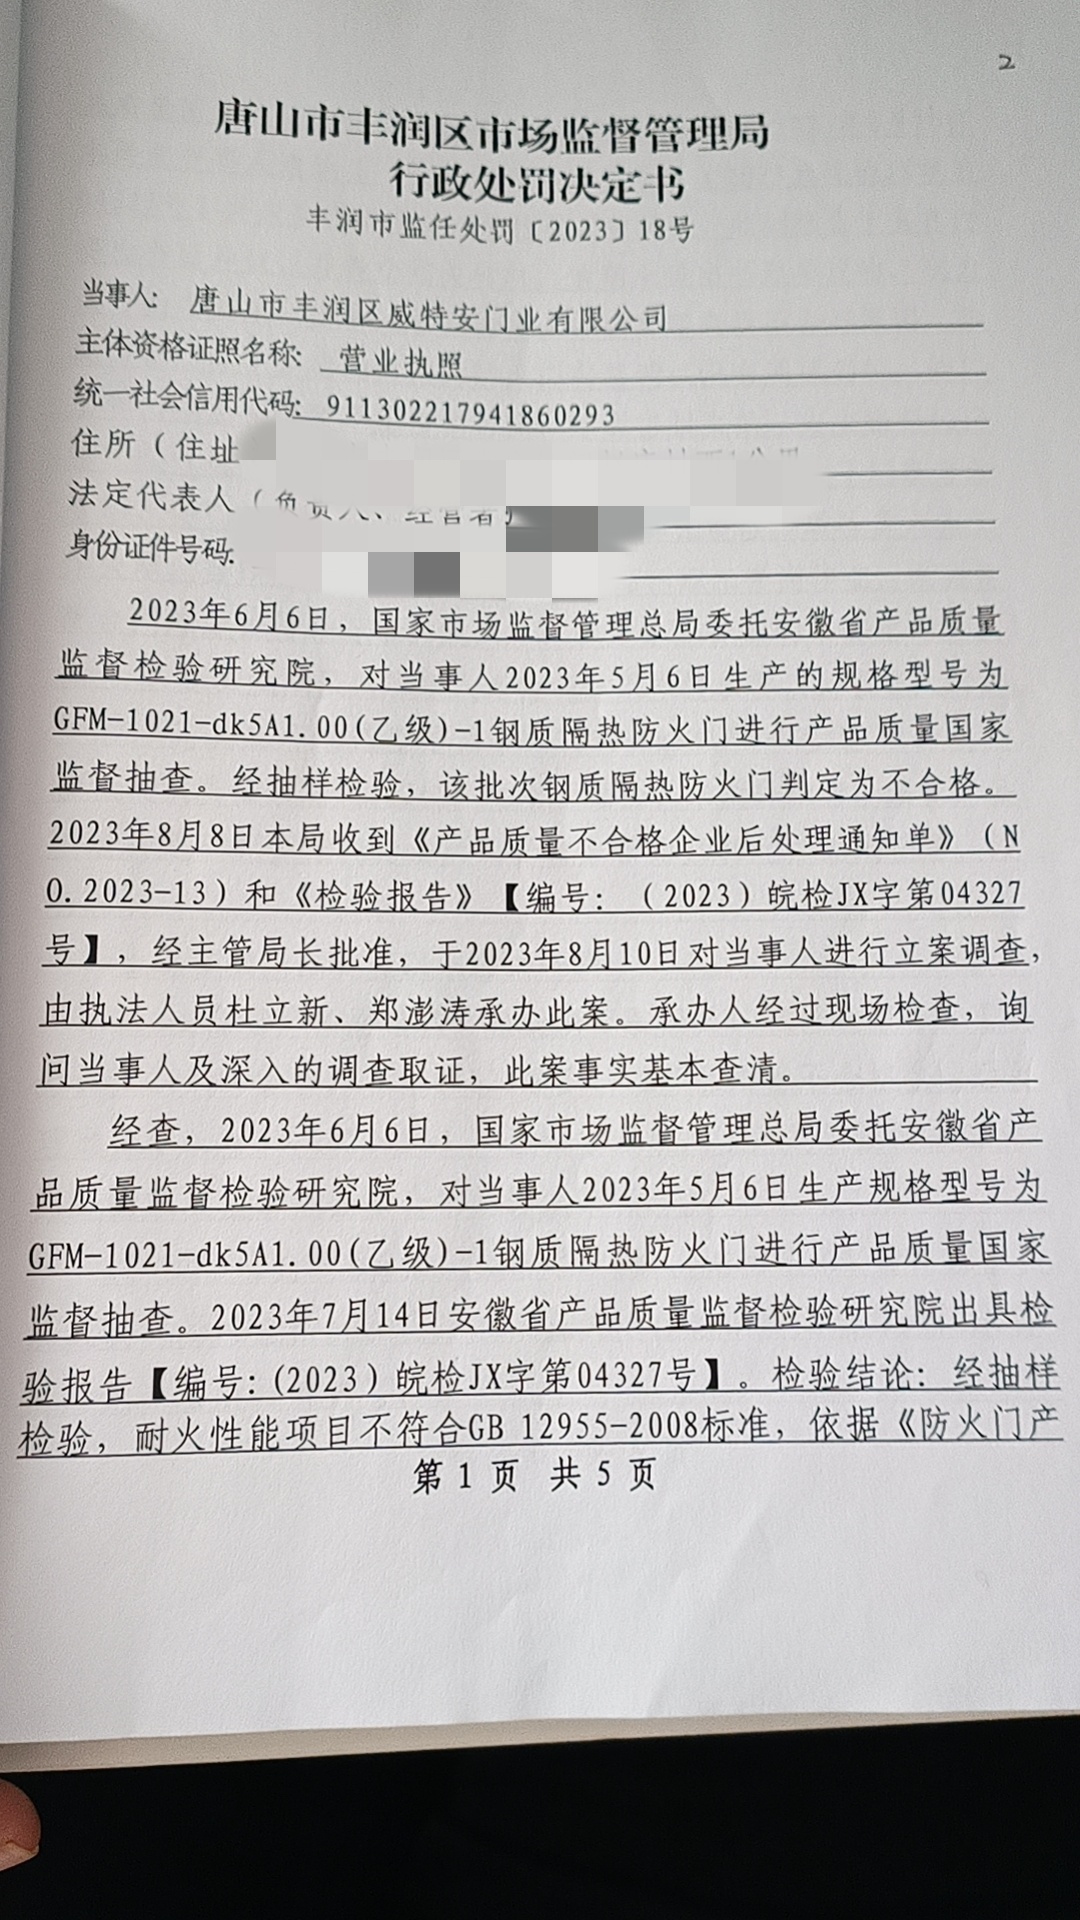 2
唐山市丰润区市场监督管理局
行政处罚决定书
丰润市监任处罚〔2023〕18号
当事人: 唐山市丰润区威特安门业有限公司
主体资格证照名称: 营业执照
统一社会信用代码: 911302217941860293
住所（住址
法定代表人（负责人、经营者）
身份证件号码:
2023年6月6日，国家市场监督管理总局委托安徽省产品质量
监督检验研究院，对当事人2023年5月6日生产的规格型号为
GFM-1021-dk5A1.00(乙级)-1钢质隔热防火门进行产品质量国家
监督抽查。经抽样检验，该批次钢质隔热防火门判定为不合格。
2023年8月8日本局收到《产品质量不合格企业后处理通知单》（N
O.2023-13）和《检验报告》【编号：（2023）皖检JX字第04327
号】，经主管局长批准，于2023年8月10日对当事人进行立案调查，
由执法人员杜立新、郑澎涛承办此案。承办人经过现场检查，询
问当事人及深入的调查取证，此案事实基本查清。
经查，2023年6月6日，国家市场监督管理总局委托安徽省产
品质量监督检验研究院，对当事人2023年5月6日生产规格型号为
GFM-1021-dk5A1.00(乙级)-1钢质隔热防火门进行产品质量国家
监督抽查。2023年7月14日安徽省产品质量监督检验研究院出具检
验报告【编号:(2023）皖检JX字第04327号】。检验结论：经抽样
检验，耐火性能项目不符合GB 12955-2008标准，依据《防火门产
第 1 页 共 5 页